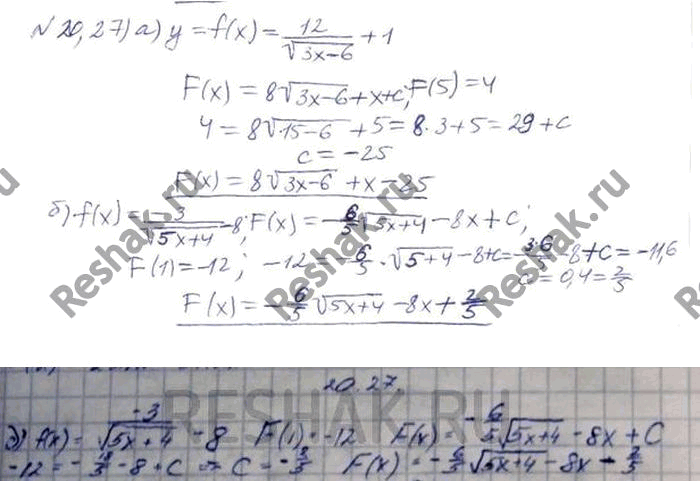 №20,27) а) y = f(x) = 12/√(3x-6) + 1
F(x) = 8√(3x-6) + x + c; F(5) = 4
4 = 8√(15-6) + 5 = 8·3 + 5 = 29 + c
c = -25
F(x) = 8√(3x-6) + x - 25
б) f(x) = 3/√(5x+4) - 8; F(x) = -6/5 √(5x+4) - 8x + c;
F(1) = -12; -12 = -6/5 · √(5+4) - 8 + c = - 3·6/5 - 8 + c = -11,6
c = 0,4 = 2/5
F(x) = -6/5 √(5x+4) - 8x + 2/5
RESHAK.RU
20.27.
д) f(x) = -3/√(5x+4) - 8 F(1) = -12 F(x) = -6/5 √(5x+4) - 8x + C
-12 = -18/5 - 8 + C ⇒ C = - /5 F(x) = -6/5 √(5x+4) - 8x - 2/5
Reshak.ru
Reshak.ru
Reshak.ru